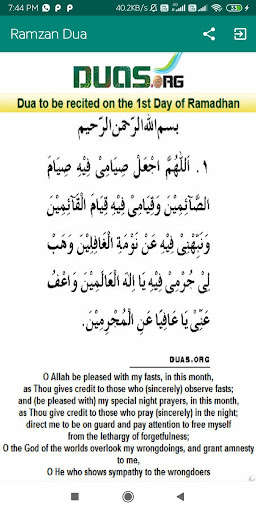 7:44 PM
40.2KB/s
Ramzan Dua
DUAS.ORG
Dua to be recited on the 1st Day of Ramadhan
بِسْمِ اللهِ الرَّحْمٰنِ الرَّحِيْمِ
١. اَللّٰهُمَّ اجْعَلْ صِيَامِيْ فِيْهِ صِيَامَ
الصَّآئِمِيْنَ وَقِيَامِيْ فِيْهِ قِيَامَ الْقَآئِمِيْنَ
وَنَبِّهْنِيْ فِيْهِ عَنْ نَوْمَةِ الْغَافِلِيْنَ وَهَبْ
لِيْ جُرْمِيْ فِيْهِ يَا اِلٰهَ الْعَالَمِيْنَ وَاعْفُ
عَنِّيْ يَا عَافِيًا عَنِ الْمُجْرِمِيْنَ.
DUAS.ORG
O Allah be pleased with my fasts, in this month,
as Thou gives credit to those who (sincerely) observe fasts;
and (be pleased with) my special night prayers, in this month,
as Thou gives credit to those who pray (sincerely) in the night;
direct me to be on guard and pay attention to free myself
from the lethargy of forgetfulness;
O the God of the worlds overlook my wrongdoings, and grant amnesty
to me,
O He who shows sympathy to the wrongdoers